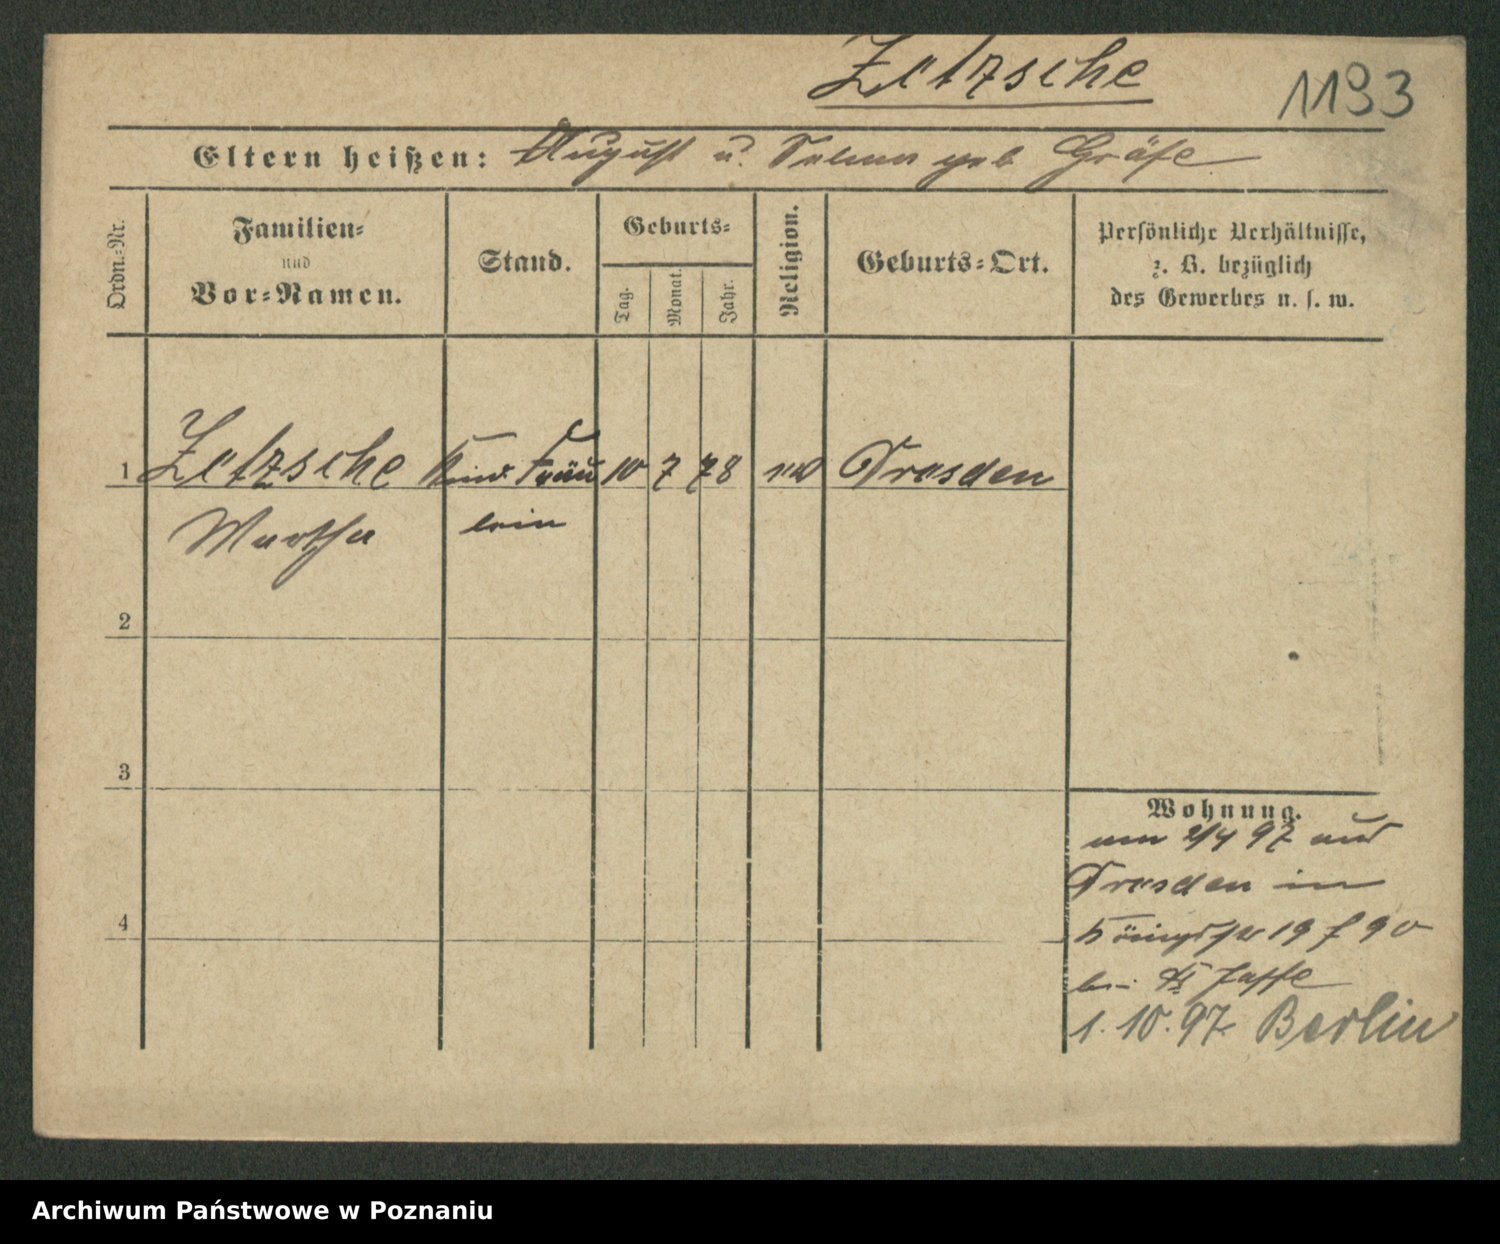 Zetzsche
1193
Eltern heißen: August u. Selma geb Gräfe
Ordn.-Nr.
Familien-
und
Vor-Namen.
Stand.
Geburts-
Tag.
Monat.
Jahr.
Religion.
Geburts-Ort.
Persönliche Verhältnisse,
z. B. bezüglich
des Gewerbes u. s. w.
1 Zetzsche Kind. Fräu 10 7 78 Dresden
Martha lein
2
3
4
Wohnung.
am 2/4 97 aus
Dresden in
19 90
bei Jaffe
1. 10. 97 Berlin
Archiwum Państwowe w Poznaniu